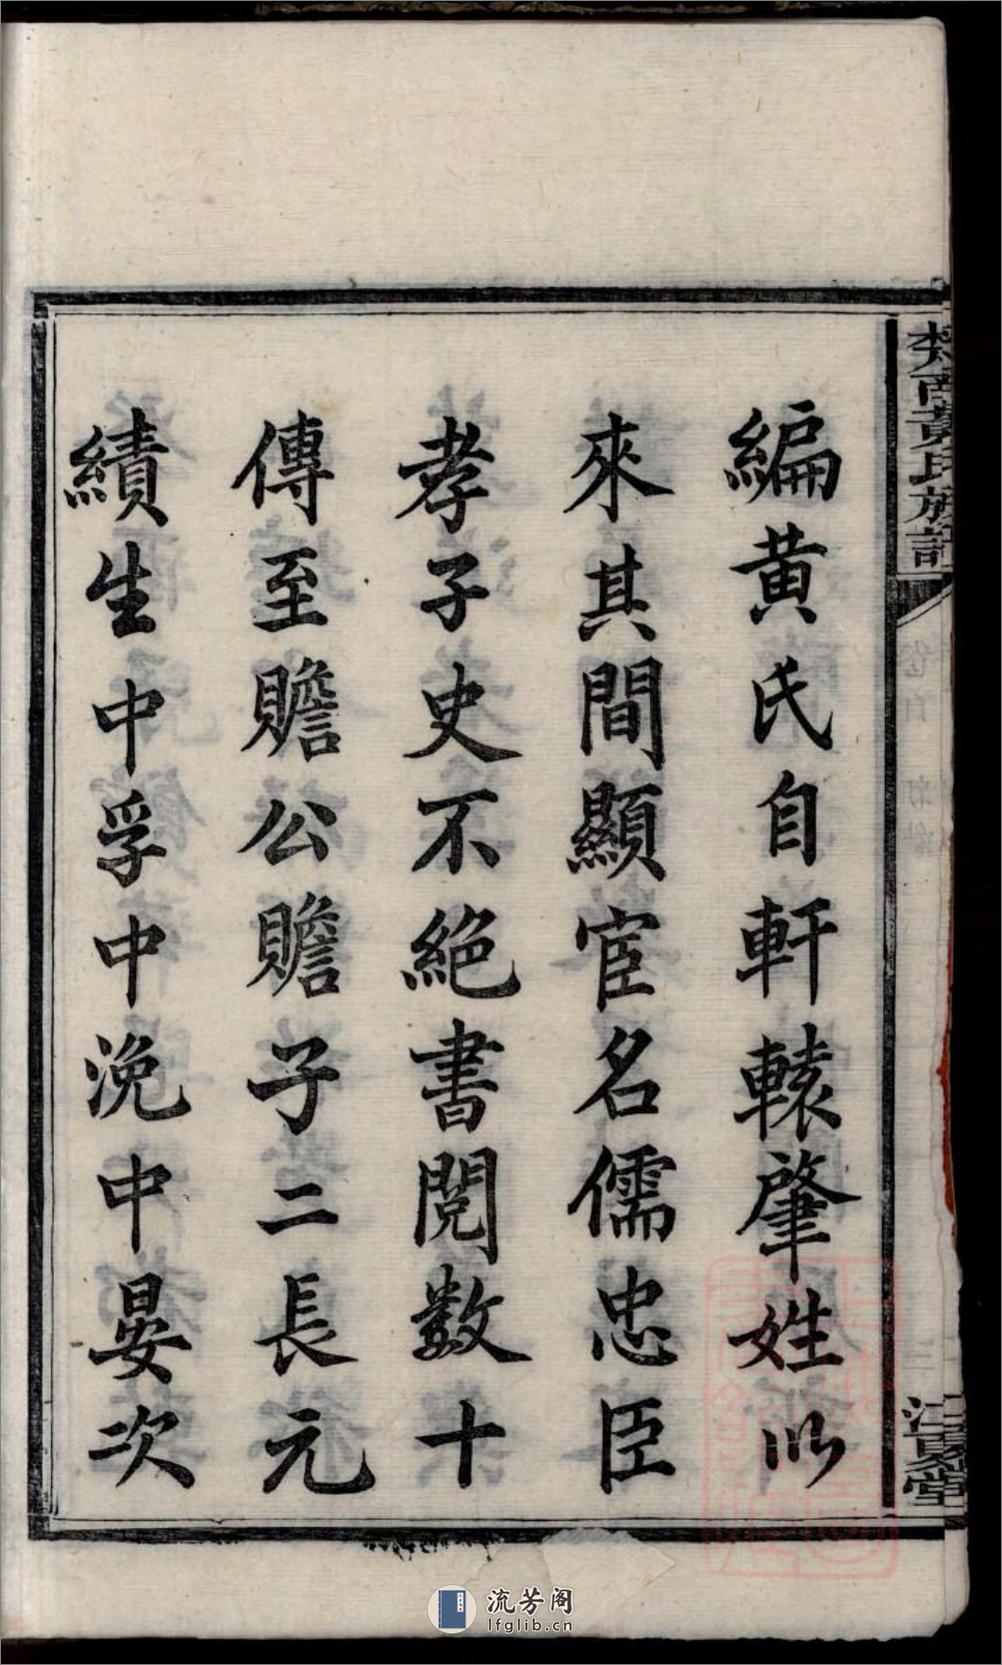 編黄氏自軒轅肇姓以
來其間顯宦名儒忠臣
孝子史不絕書閱数十
傳至贍公贍子二長元
績生中孚中浼中晏次
黃氏族譜
江夏堂
流芳阁
lfglib.cn